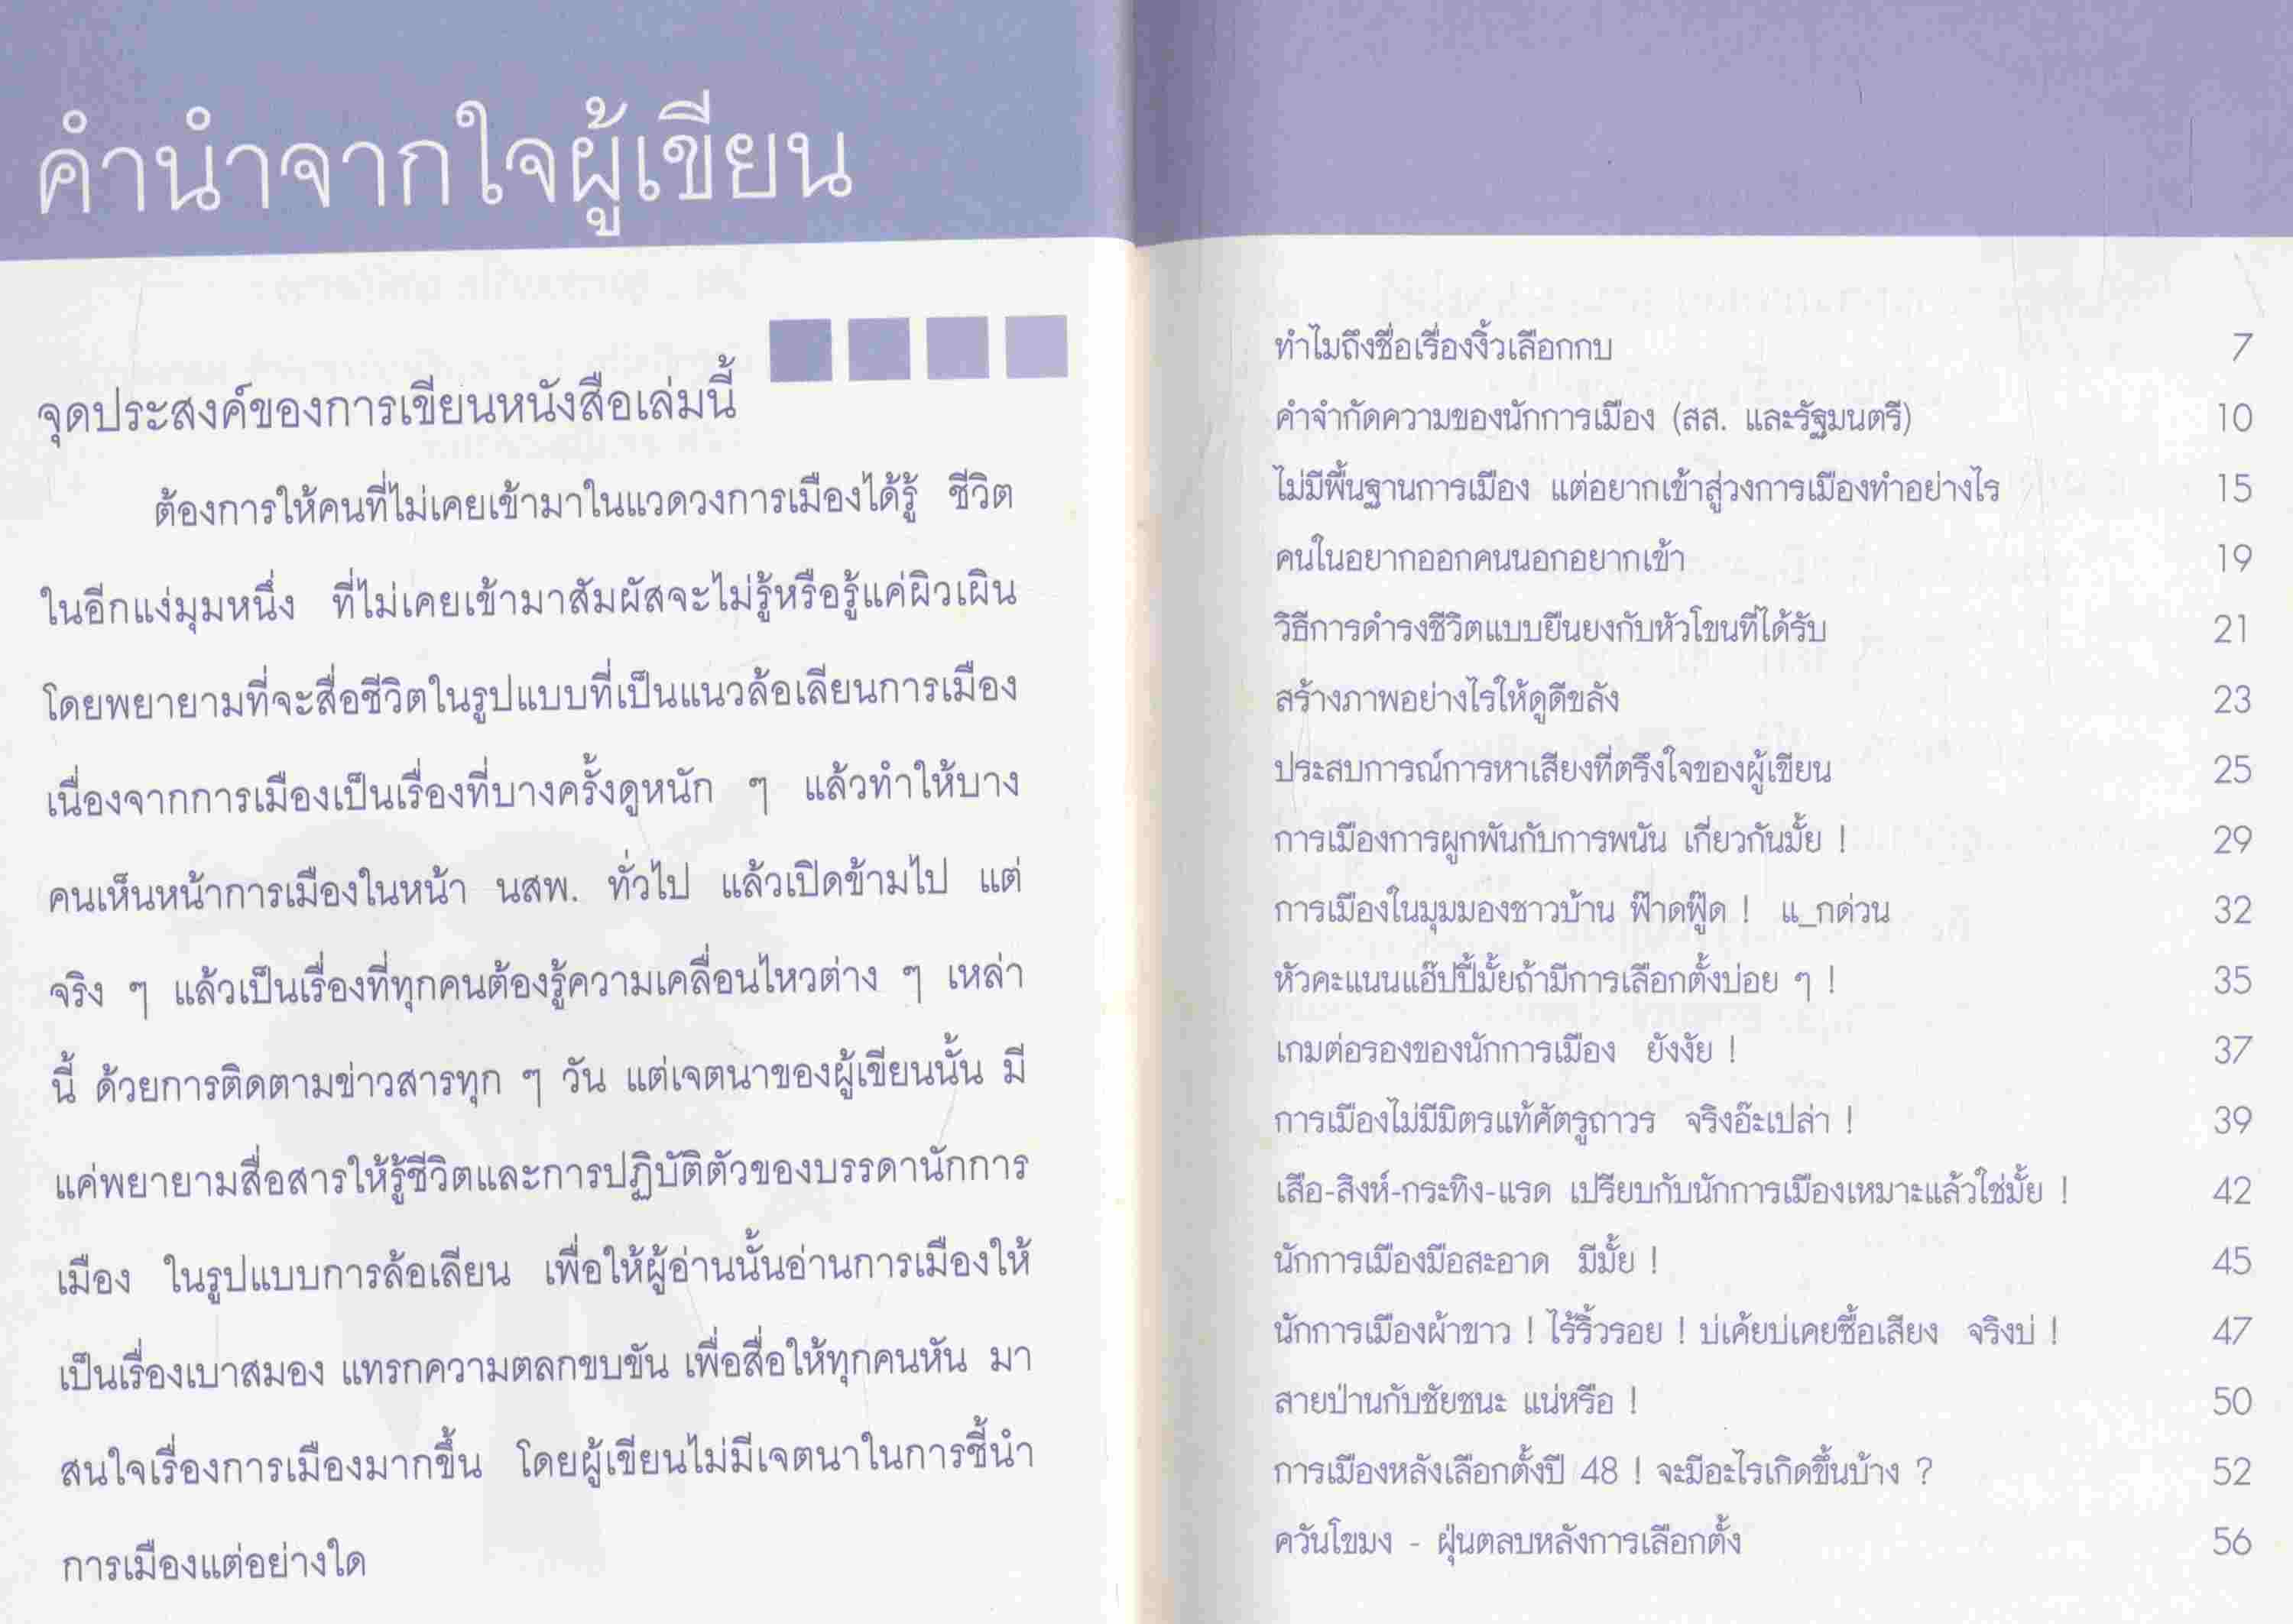 คำนำจากใจผู้เขียน
จุดประสงค์ของการเขียนหนังสือเล่มนี้
ต้องการให้คนที่ไม่เคยเข้ามาในแวดวงการเมืองได้รู้ ชีวิต
ในอีกแง่มุมหนึ่ง ที่ไม่เคยเข้ามาสัมผัสจะไม่รู้หรือรู้แค่ผิวเผิน
โดยพยายามที่จะสื่อชีวิตในรูปแบบที่เป็นแนวล้อเลียนการเมือง
เนื่องจากการเมืองเป็นเรื่องที่บางครั้งดูหนัก ๆ แล้วทำให้บาง
คนเห็นหน้าการเมืองในหน้า นสพ. ทั่วไป แล้วเปิดข้ามไป แต่
จริง ๆ แล้วเป็นเรื่องที่ทุกคนต้องรู้ความเคลื่อนไหวต่าง ๆ เหล่า
นี้ ด้วยการติดตามข่าวสารทุก ๆ วัน แต่เจตนาของผู้เขียนนั้น มี
แค่พยายามสื่อสารให้รู้ชีวิตและการปฏิบัติตัวของบรรดานักการ
เมือง ในรูปแบบการล้อเลียน เพื่อให้ผู้อ่านนั้นอ่านการเมืองให้
เป็นเรื่องเบาสมอง แทรกความตลกขบขัน เพื่อสื่อให้ทุกคนหัน มา
สนใจเรื่องการเมืองมากขึ้น โดยผู้เขียนไม่มีเจตนาในการชี้นำ
การเมืองแต่อย่างใด
ทำไมถึงชื่อเรื่องงิ้วเลือกกบ 7
คำจำกัดความของนักการเมือง (สส. และรัฐมนตรี) 10
ไม่มีพื้นฐานการเมือง แต่อยากเข้าสู่วงการเมืองทำอย่างไร 15
คนในอยากออกคนนอกอยากเข้า 19
วิธีการดำรงชีวิตแบบยืนยงกับหัวโขนที่ได้รับ 21
สร้างภาพอย่างไรให้ดูดีขลัง 23
ประสบการณ์การหาเสียงที่ตรึงใจของผู้เขียน 25
การเมืองการผูกพันกับการพนัน เกี่ยวกันมั้ย ! 29
การเมืองในมุมมองชาวบ้าน ฟ๊าดฟู๊ด ! แ_กด่วน 32
หัวคะแนนแอ๊ปปี้มั้ยถ้ามีการเลือกตั้งบ่อย ๆ ! 35
เกมต่อรองของนักการเมือง ยังงัย ! 37
การเมืองไม่มีมิตรแท้ศัตรูถาวร จริงอ๊ะเปล่า ! 39
เสือ-สิงห์-กระทิง-แรด เปรียบกับนักการเมืองเหมาะแล้วใช่มั้ย ! 42
นักการเมืองมือสะอาด มีมั้ย ! 45
นักการเมืองผ้าขาว ! ไร้ริ้วรอย ! บ่เค้ยบ่เคยซื้อเสียง จริงบ่ ! 47
สายป่านกับชัยชนะ แน่หรือ ! 50
การเมืองหลังเลือกตั้งปี 48 ! จะมีอะไรเกิดขึ้นบ้าง ? 52
ควันโขมง - ฝุ่นตลบหลังการเลือกตั้ง 56